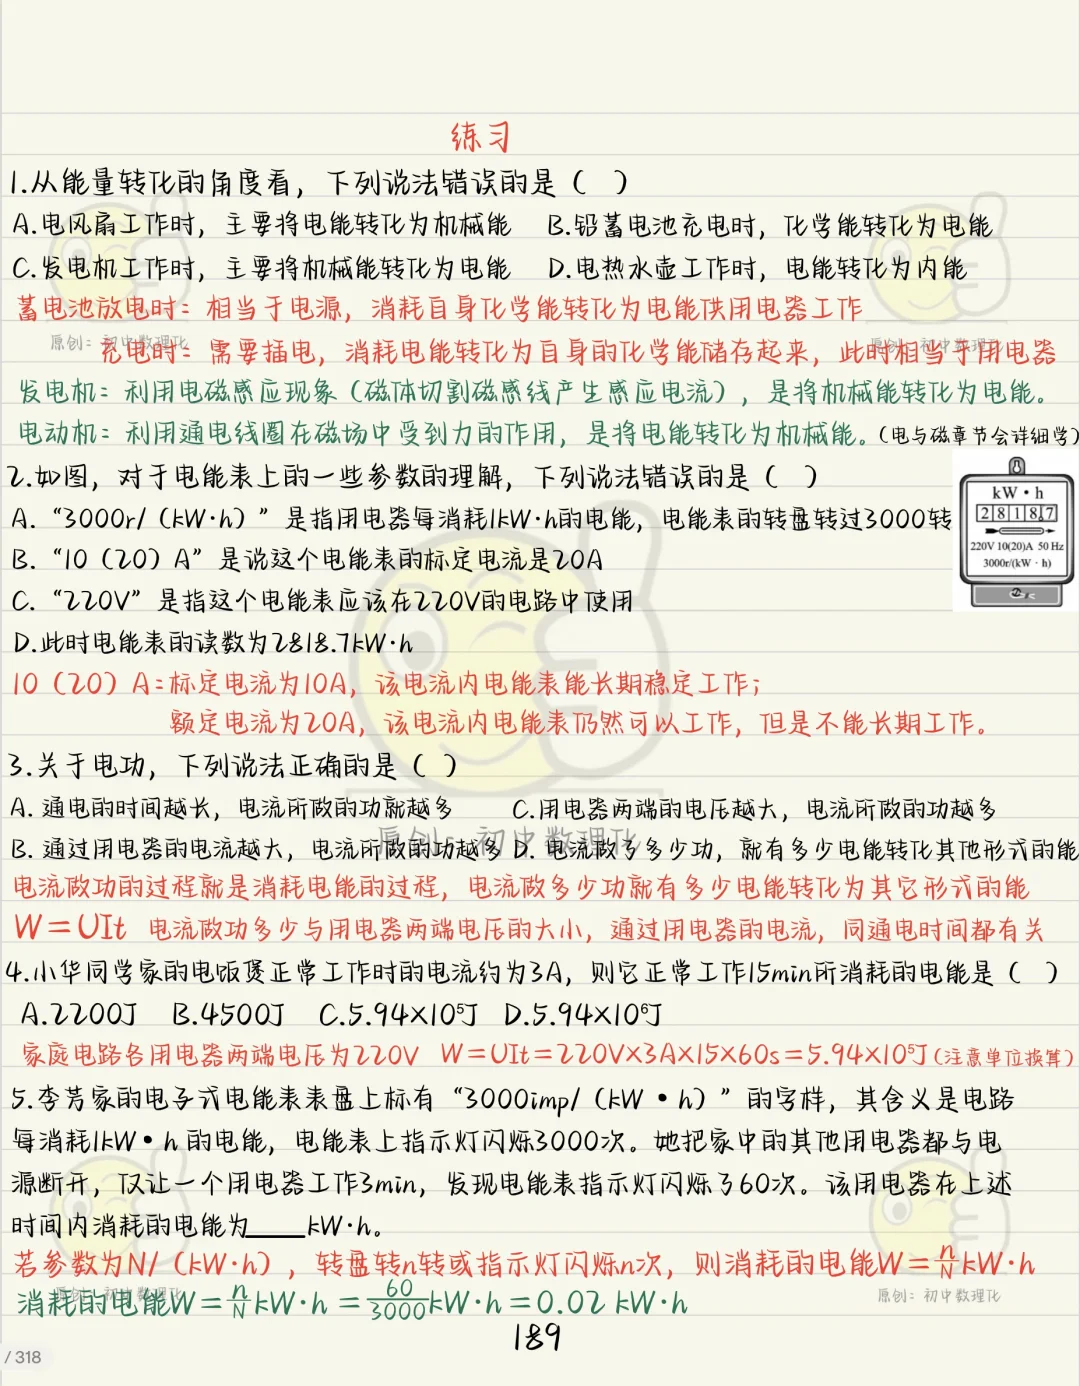 练习
1.从能量转化的角度看，下列说法错误的是（ ）
A.电风扇工作时，主要将电能转化为机械能 B.铅蓄电池充电时，化学能转化为电能
C.发电机工作时，主要将机械能转化为电能 D.电热水壶工作时，电能转化为内能
蓄电池放电时：相当于电源，消耗自身化学能转化为电能供用电器工作
原创：初中数理化
原创：初中数理化
充电时：需要插电，消耗电能转化为自身的化学能储存起来，此时相当于用电器
发电机：利用电磁感应现象（磁体切割磁感线产生感应电流），是将机械能转化为电能。
电动机：利用通电线圈在磁场中受到力的作用，是将电能转化为机械能。（电与磁章节会详细学）
2.如图，对于电能表上的一些参数的理解，下列说法错误的是（ ）
A.“3000r/（kW·h）”是指用电器每消耗1kW·h的电能，电能表的转盘转过3000转
B.“10（20）A”是说这个电能表的标定电流是20A
C.“220V”是指这个电能表应该在220V的电路中使用
D.此时电能表的读数为2818.7kW·h
kW·h
28187
220V 10(20)A 50 Hz
3000r/(kW·h)
10（20）A：标定电流为10A，该电流内电能表能长期稳定工作；
额定电流为20A，该电流内电能表仍然可以工作，但是不能长期工作。
3.关于电功，下列说法正确的是（ ）
A. 通电的时间越长，电流所做的功就越多 C.用电器两端的电压越大，电流所做的功越多
原创：初中数理化
B. 通过用电器的电流越大，电流所做的功越多 D. 电流做了多少功，就有多少电能转化其他形式的能
电流做功的过程就是消耗电能的过程，电流做多少功就有多少电能转化为其它形式的能
W=UIt 电流做功多少与用电器两端电压的大小，通过用电器的电流，同通电时间都有关
4.小华同学家的电饭煲正常工作时的电流约为3A，则它正常工作15min所消耗的电能是（ ）
A.2200J B.4500J C.5.94×10⁵J D.5.94×10⁶J
家庭电路各用电器两端电压为220V W=UIt=220V×3A×15×60s=5.94×10⁵J（注意单位换算）
5.李芳家的电子式电能表表盘上标有“3000imp/（kW·h）”的字样，其含义是电路
每消耗1kW·h的电能，电能表上指示灯闪烁3000次。她把家中的其他用电器都与电
源断开，仅让一个用电器工作3min，发现电能表指示灯闪烁了60次。该用电器在上述
时间内消耗的电能为_____kW·h。
若参数为N/（kW·h），转盘转n转或指示灯闪烁n次，则消耗的电能W=n/N kW·h
原创：初中数理化
原创：初中数理化
消耗的电能W=n/N kW·h=60/3000 kW·h=0.02 kW·h
189
/ 318